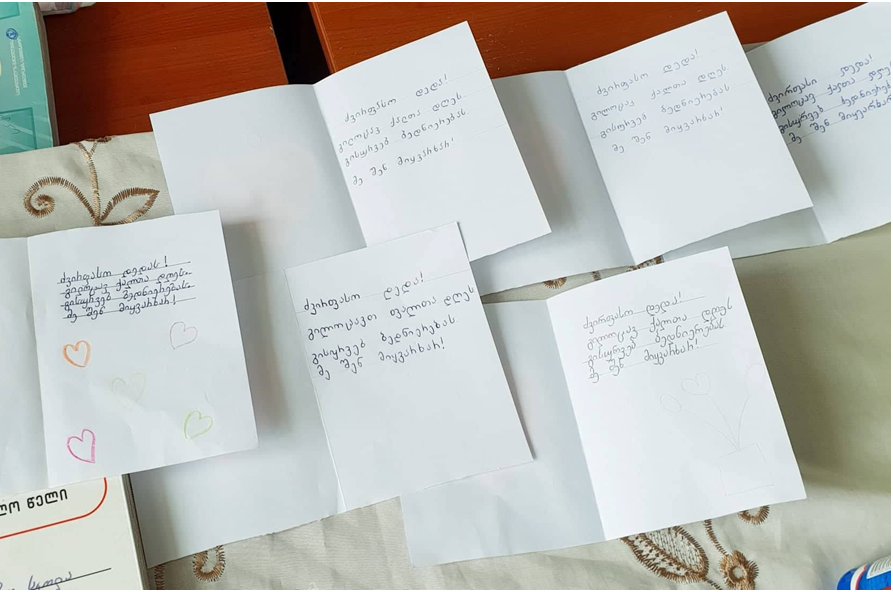 ძვირფასო დედა!
გილოცავ ქალთა დღეს
გისურვებ ბედნიერებას
მე შენ მიყვარხარ!
ძვირფასო დედა!
გილოცავ ქალთა დღეს
გისურვებ ბედნიერებას
მე შენ მიყვარხარ!
ძვირფასო დედა!
გილოცავ ქალთა დღეს
გისურვებ ბედნიერებას
მე შენ მიყვარხარ!
ძვირფასო დედა!
გილოცავ ქალთა დღეს.
გისურვებ ბედნიერებას.
მე შენ მიყვარხარ!
ძვირფასო დედა!
გილოცავთ ქალთა დღეს
გისურვებ ბედნიერებას
მე შენ მიყვარხარ!
ძვირფასო დედა!
გილოცავ ქალთა დღეს
გისურვებ ბედნიერებას
მე შენ მიყვარხარ!
წელი